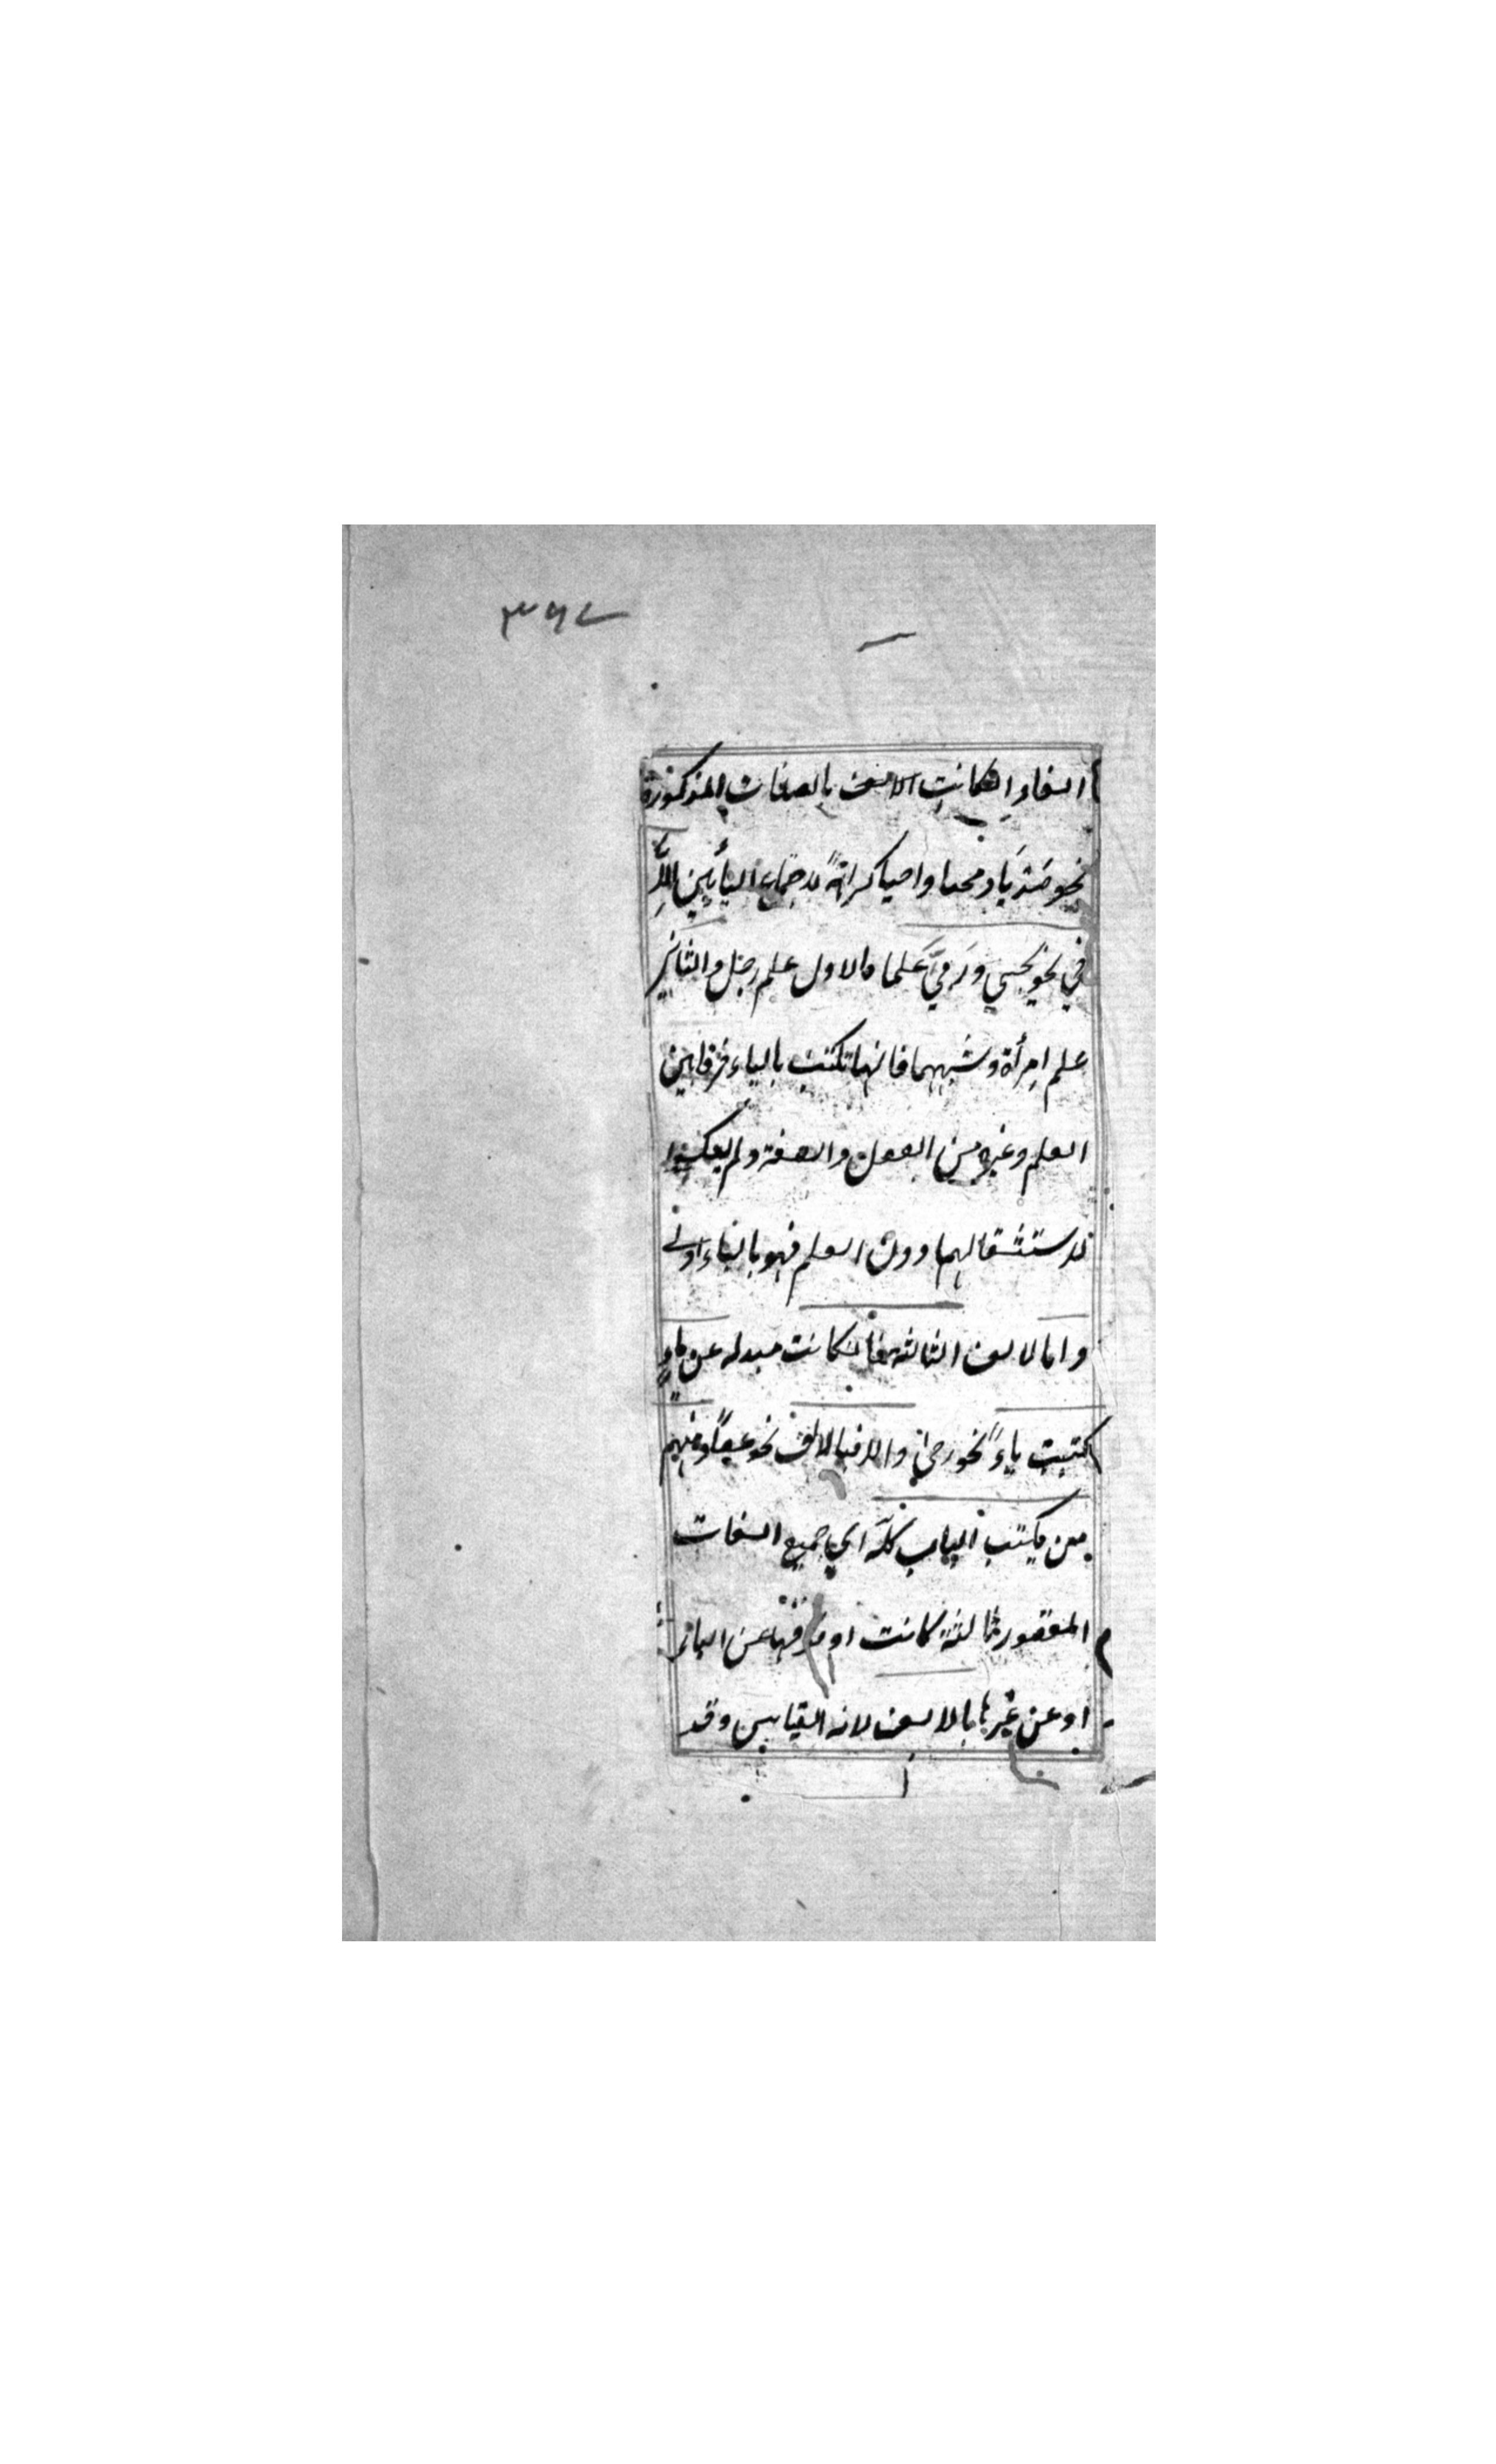 ٣٩٧
الفا وان كانت الالف بالصفات المذكورة
نحو صديا ومحيا واحيا كراهةً لاجتماع اليائين الا
في نحو يحيي وريّي علما فالاول علم رجل والثاني
علم امرأة وشبههما فانها تكتب بالياء فرقا بين
العلم وغيره من الفعل والصفة ولم يعكسوا
لاستثقالهما دون العلم فهو بالياء اولى
واما الالف الثالثة فان كانت مبدلة عن ياءٍ
كتبت ياءً نحو رحى والا فبالالف نحو عصًا ومنهم
من يكتب الباب كله اي جميع الفات
المقصور ثالثة كانت او فوقها عن الياء
او عن غيرها بالالف لانه القياس وقد